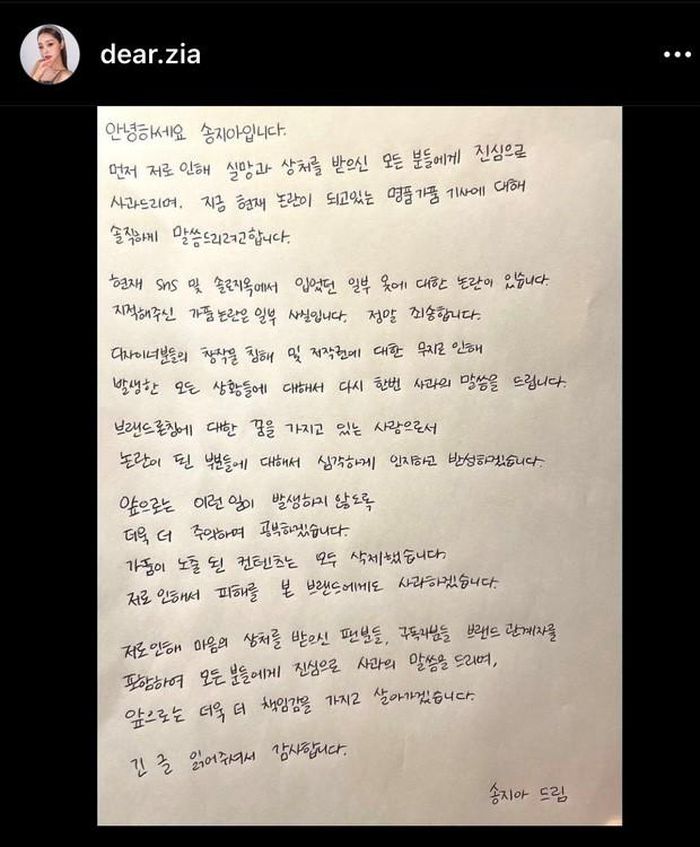 dear.zia
안녕하세요 송지아입니다.
먼저 저로 인해 실망과 상처를 받으신 모든 분들에게 진심으로
사과드리며, 지금 현재 논란이 되고있는 명품가품 기사에 대해
솔직하게 말씀드리려고합니다.
현재 sns 및 솔로지옥에서 입었던 일부 옷에 대한 논란이 있습니다.
지적해주신 가품논란은 일부 사실입니다. 정말 죄송합니다.
디자이너분들의 창작물 침해 및 저작권에 대한 무지로 인해
발생한 모든 상황들에 대해서 다시 한번 사과의 말씀을 드립니다.
브랜드론칭에 대한 꿈을 가지고 있는 사람으로서
논란이 된 부분들에 대해서 심각하게 인지하고 반성하겠습니다.
앞으로는 이런 일이 발생하지 않도록
더욱 더 주의하며 공부하겠습니다.
가품이 노출 된 컨텐츠는 모두 삭제했습니다.
저로 인해서 피해를 본 브랜드에게도 사과하겠습니다.
저로인해 마음의 상처를 받으신 팬분들, 구독자분들 브랜드 관계자를
포함하여 모든분들에게 진심으로 사과의 말씀을 드리며,
앞으로는 더욱 더 책임감을 가지고 살아가겠습니다.
긴 글 읽어주셔서 감사합니다.
송지아 드림